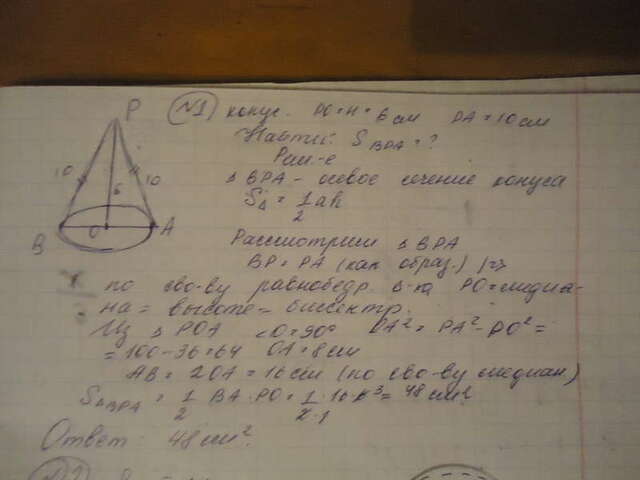 P
№1 конус. PO=H=6см PA=10см
Найти: S BPA=?
Реш-е
10 6 10
B O A
Δ BPA – осевое сечение конуса
SΔ = 1/2 ah
Рассмотрим Δ BPA
BP = PA (как образ.) |=>
по св-ву равнобедр. Δ-ка PO=медиа-
на = высоте = биссектр.
Из Δ POA ∠O=90° OA² = PA²-PO² =
= 100-36=64 OA=8см
AB = 2OA = 16см (по св-ву медиан)
SΔBPA = 1/2 BA·PO = 1/2·1 ·16·6³ = 48см².
Ответ: 48см².
№2